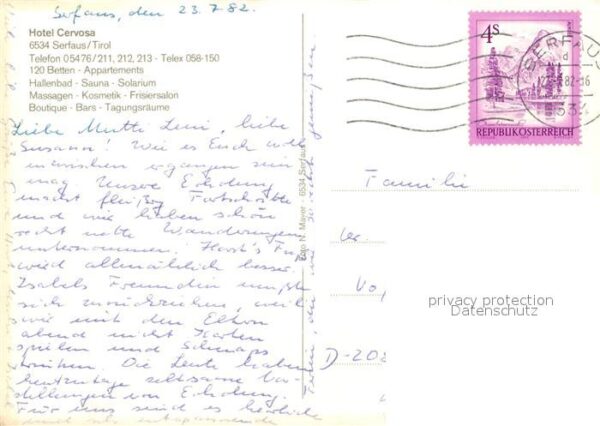 Serfaus, den 23.7.82.
Hotel Cervosa
6534 Serfaus/Tirol
Telefon 05476/211, 212, 213 - Telex 058-150
120 Betten - Appartements
Hallenbad - Sauna - Solarium
Massagen - Kosmetik - Frisiersalon
Boutique - Bars - Tagungsräume
Liebe Mutti Leni, liebe
Susanna! Wie es Euch wohl
inzwischen ergangen sein
mag. Unsere Erholung
macht fleißig Fortschritte
und wir haben schon
recht nette Wanderungen
unternommen. Horst's Fuß
wird allmählich besser.
Isabels Freundin mußte
sich zurückziehen, weil
sie mit den Eltern
abend nicht Karten
spielen und Schnaps
trinken. Die Leute haben
heutzutage seltsame Vor-
stellungen von Erholung.
Für uns sind es herrliche
und
Ferien, die wir so recht genießen
Foto N. Mayor - 6534 Serfaus
4S
REPUBLIK ÖSTERREICH
SERFAUS
82-16
6534
Familie
Vo
D-202
privacy protection
Datenschutz